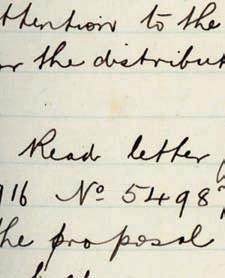 ttention to the
or the distribut
Read letter
916 No 5498
the proposal